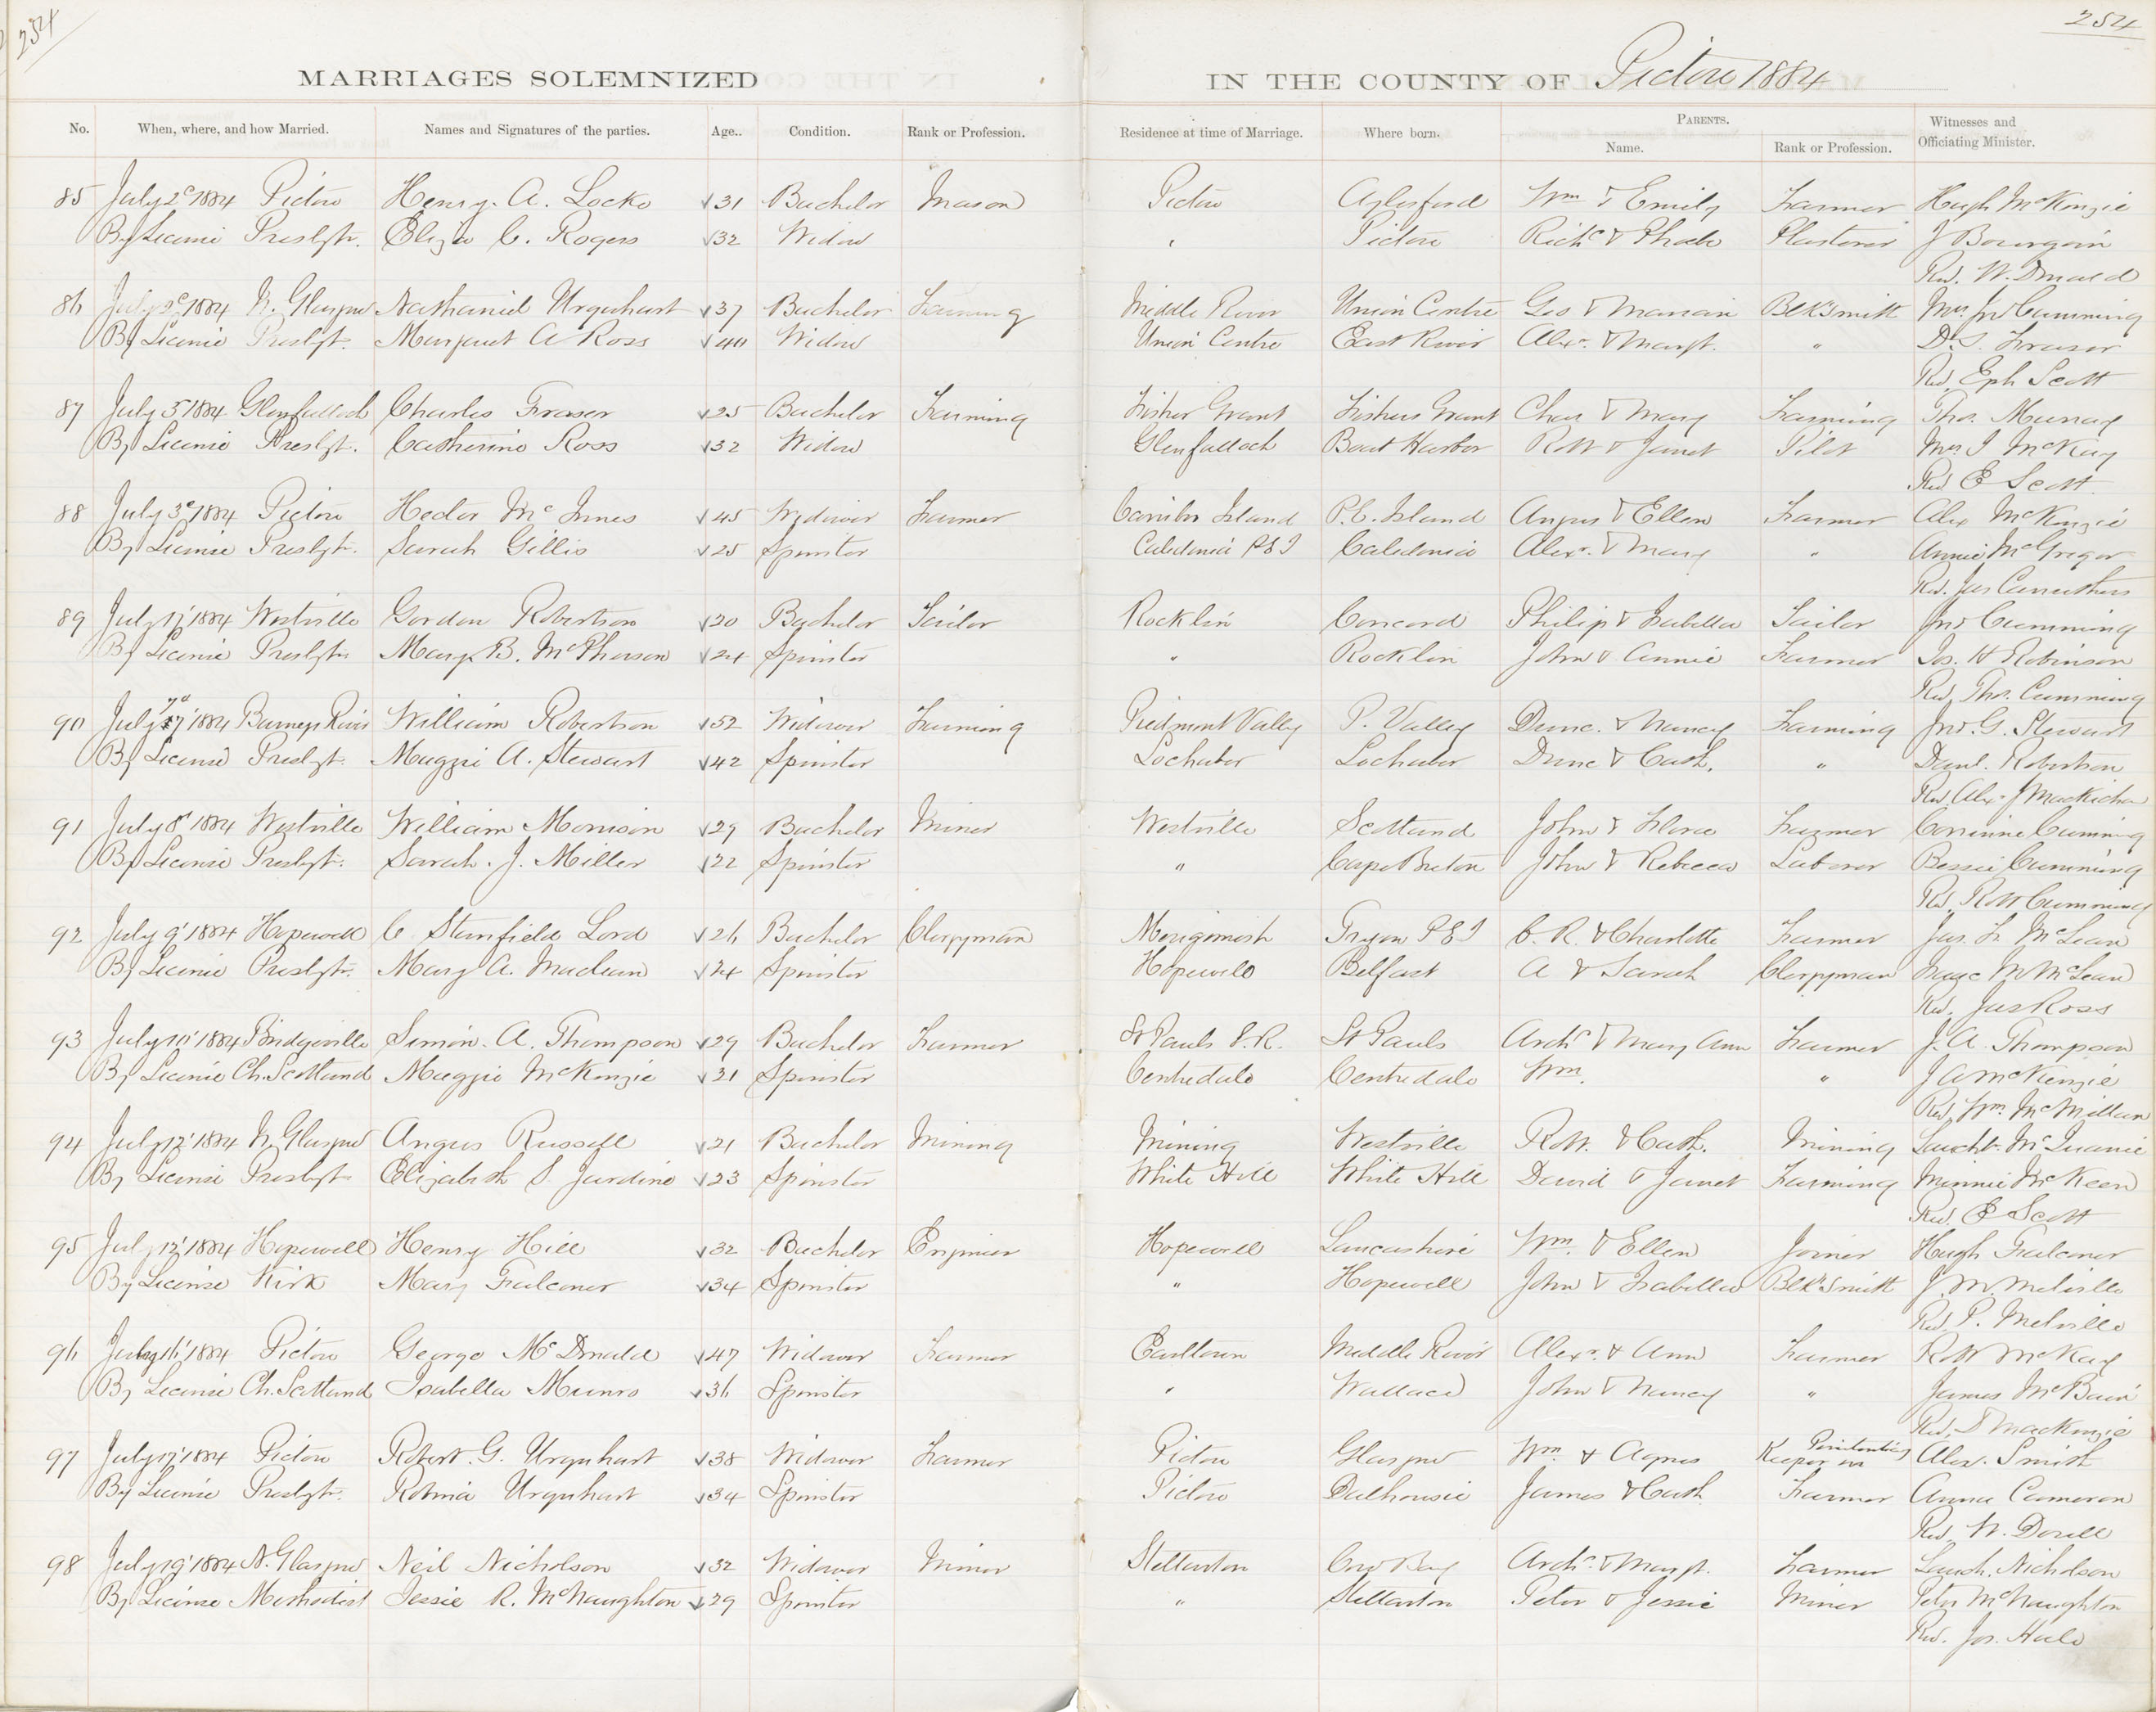 254
254
MARRIAGES SOLEMNIZED IN THE COUNTY OF Pictou 1884
No. When, where, and how Married. Names and Signatures of the parties. Age.. Condition. Rank or Profession. Residence at time of Marriage. Where born. PARENTS. Name. Rank or Profession. Witnesses and Officiating Minister.
85 July 2 1884 Pictou Henry. A. Locke 31 Bachelor Mason Pictou Aylesford Wm & Emily Farmer Hugh McKenzie
By License Presbyt. Eliza C. Rogers 32 Widow " Pictou Richd & Phoebe Plasterer J Bourgoin
Rev. W. Donald
86 July 1884 N. Glasgow Nathaniel Urquhart 37 Bachelor Farming Middle River Union Centre Geo & Marian Blk'Smith Mrs Jno Cumming
By License Presbyt. Margaret A Ross 40 Widow Union Centre East River Alexr. & Margt. " D. S. Fraser
Rev. Eph Scott
87 July 3 1884 Glenfulloch Charles Fraser 25 Bachelor Farming Fisher Grant Fishers Grant Chas & Mary Farming Thos. Murray
By License Presbyt. Catherine Ross 32 Widow Glenfulloch Boat Harbor Robt & Janet Pilot Mrs J McKay
Rev E Scott
88 July 3 1884 Pictou Hector McInnes 45 Widower Farmer Caribou Island P.E. Island Angus & Ellen Farmer Alex McKenzie
By License Presbyt. Sarah Gillis 25 Spinster Caledonia P E I Caledonia Alexr. & Mary " Annie McGregor
Rev. Jas Carruthers
89 July 1884 Westville Gordon Robertson 20 Bachelor Tailor Rocklin Concord Philip & Isabella Tailor Jno Cumming
By License Presbytn Mary B. McPherson 24 Spinster " Rocklin John & Annie Farmer Jos. H Robinson
Rev. Thos. Cumming
90 July 1884 Barneys River William Robertson 52 Widower Farming Piedmont Valley P. Valley Dunc. & Nancy Farming Jno. G. Stewart
By License Presbyt. Maggie A. Stewart 42 Spinster Lochaber Lochaber Dunc & Cath. " Danl. Robertson
Rev. Alex J MacKichan
91 July 8 1884 Westville William Morrison 29 Bachelor Miner Westville Scotland John & Flora Farmer Corinne Cumming
By License Presbyt. Sarah. J. Miller 22 Spinster " Cape Breton John & Rebecca Laborer Bessie Cumming
Rev. Robt Cumming
92 July 9 1884 Hopewell C Stanfield Lord 26 Bachelor Clergyman Merigomish Tryon P E I C. R. & Charlotte Farmer Jas. F. McLean
By License Presbytr. Mary A. Maclean 24 Spinster Hopewell Belfast A & Sarah Clergyman McLean
Rev. Jas Ross
93 July 10 1884 Bridgeville Simon. A. Thompson 29 Bachelor Farmer St Pauls E.R. St Pauls Archd & Mary Ann Farmer J. A. Thompson
By License Ch. Scotland Maggie McKenzie 21 Spinster Centredale Centredale Wm. " J A McKenzie
Rev. Wm. McMillan
94 July 12 1884 N. Glasgow Angus Russell 21 Bachelor Mining Mining Westville Robt. & Cath. Mining Lauchl. McQuarrie
By License Presbyt Elizabeth S Jardine 23 Spinster White Hill White Hill David & Janet Farming Minnie McKeen
Rev. E Scott
95 July 12 1884 Hopewell Henry Hill 32 Bachelor Engineer Hopewell Lancashire Wm. & Ellen Joiner Hugh Falconer
By License Kirk Mary Falconer 34 Spinster " Hopewell John & Isabella Blk'Smith J. M. Melville
Rev P. Melville
96 July 16 1884 Pictou George McDonald 47 Widower Farmer Earltown Middle River Alexr. & Ann Farmer Robt McKay
By License Ch. Scotland Isabella Munro 36 Spinster " Wallace John & Nancy " James McBain
Rev. MacKenzie
97 July 17 1884 Pictou Robert. G. Urquhart 38 Widower Farmer Pictou Glasgow Wm & Agnes Keeper in Penitentiary Alex. Smith
By License Presbyt. Robina Urquhart 34 Spinster Pictou Dalhousie James & Cath. Farmer Anna Cameron
Rev. W. Donald
98 July 19 1884 N. Glasgow Neil Nicholson 32 Widower Miner Stellarton Cow Bay Archd. & Margt. Farmer Lauch. Nicholson
By License Methodist Jessie R. McNaughton 29 Spinster " Stellarton Peter & Jessie Miner Peter McNaughton
Rev. Jos. Hale